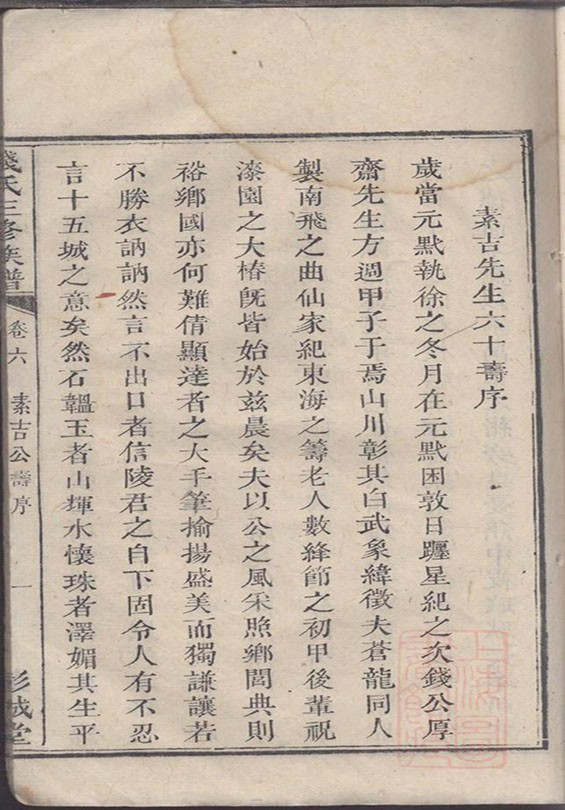 素吉先生六十壽序
歲當元黓執徐之冬月在元黓困敦日躔星紀之次錢公厚
齋先生方週甲子于焉山川彰其白武象緯徵夫蒼龍同人
製南飛之曲仙家紀東海之籌老人數絳節之初甲後輩祝
漆園之大椿旣皆始於茲晨矣夫以公之風采照鄉閭典則
裕鄉國亦何難倩顯達者之大手筆揄揚盛美而獨謙讓若
不勝衣訥訥然言不出口者信陵君之自下固令人有不忍
言十五城之意矣然石韞玉者山煇水懷珠者澤媚其生平
錢氏三修族譜
卷六
素吉公壽序
一
彭城堂